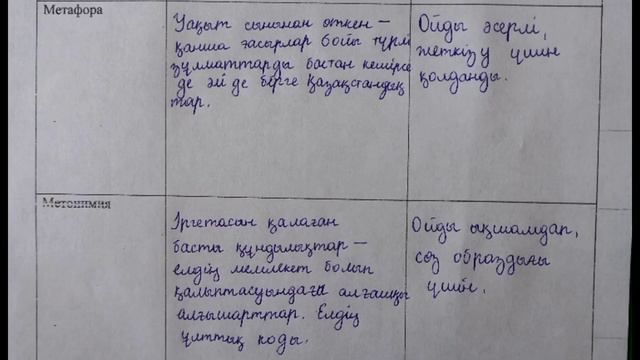 Метафора
Уақыт сынынан өткен –
қанша ғасырлар бойы түрлі
зұлматтарды бастан кешірсе
де әлі де бірге Қазақстандық
тар.
Ойды әсерлі,
жеткізу үшін
қолданды.
Метонимия
Іргетасын қалаған
басты құндылықтар –
елдің мемлекет болып
қалыптасуындағы алғашқы
алғышарттар. Елдің
ұлттық коды.
Ойды ықшамдап,
сөз образдығы
үшін.